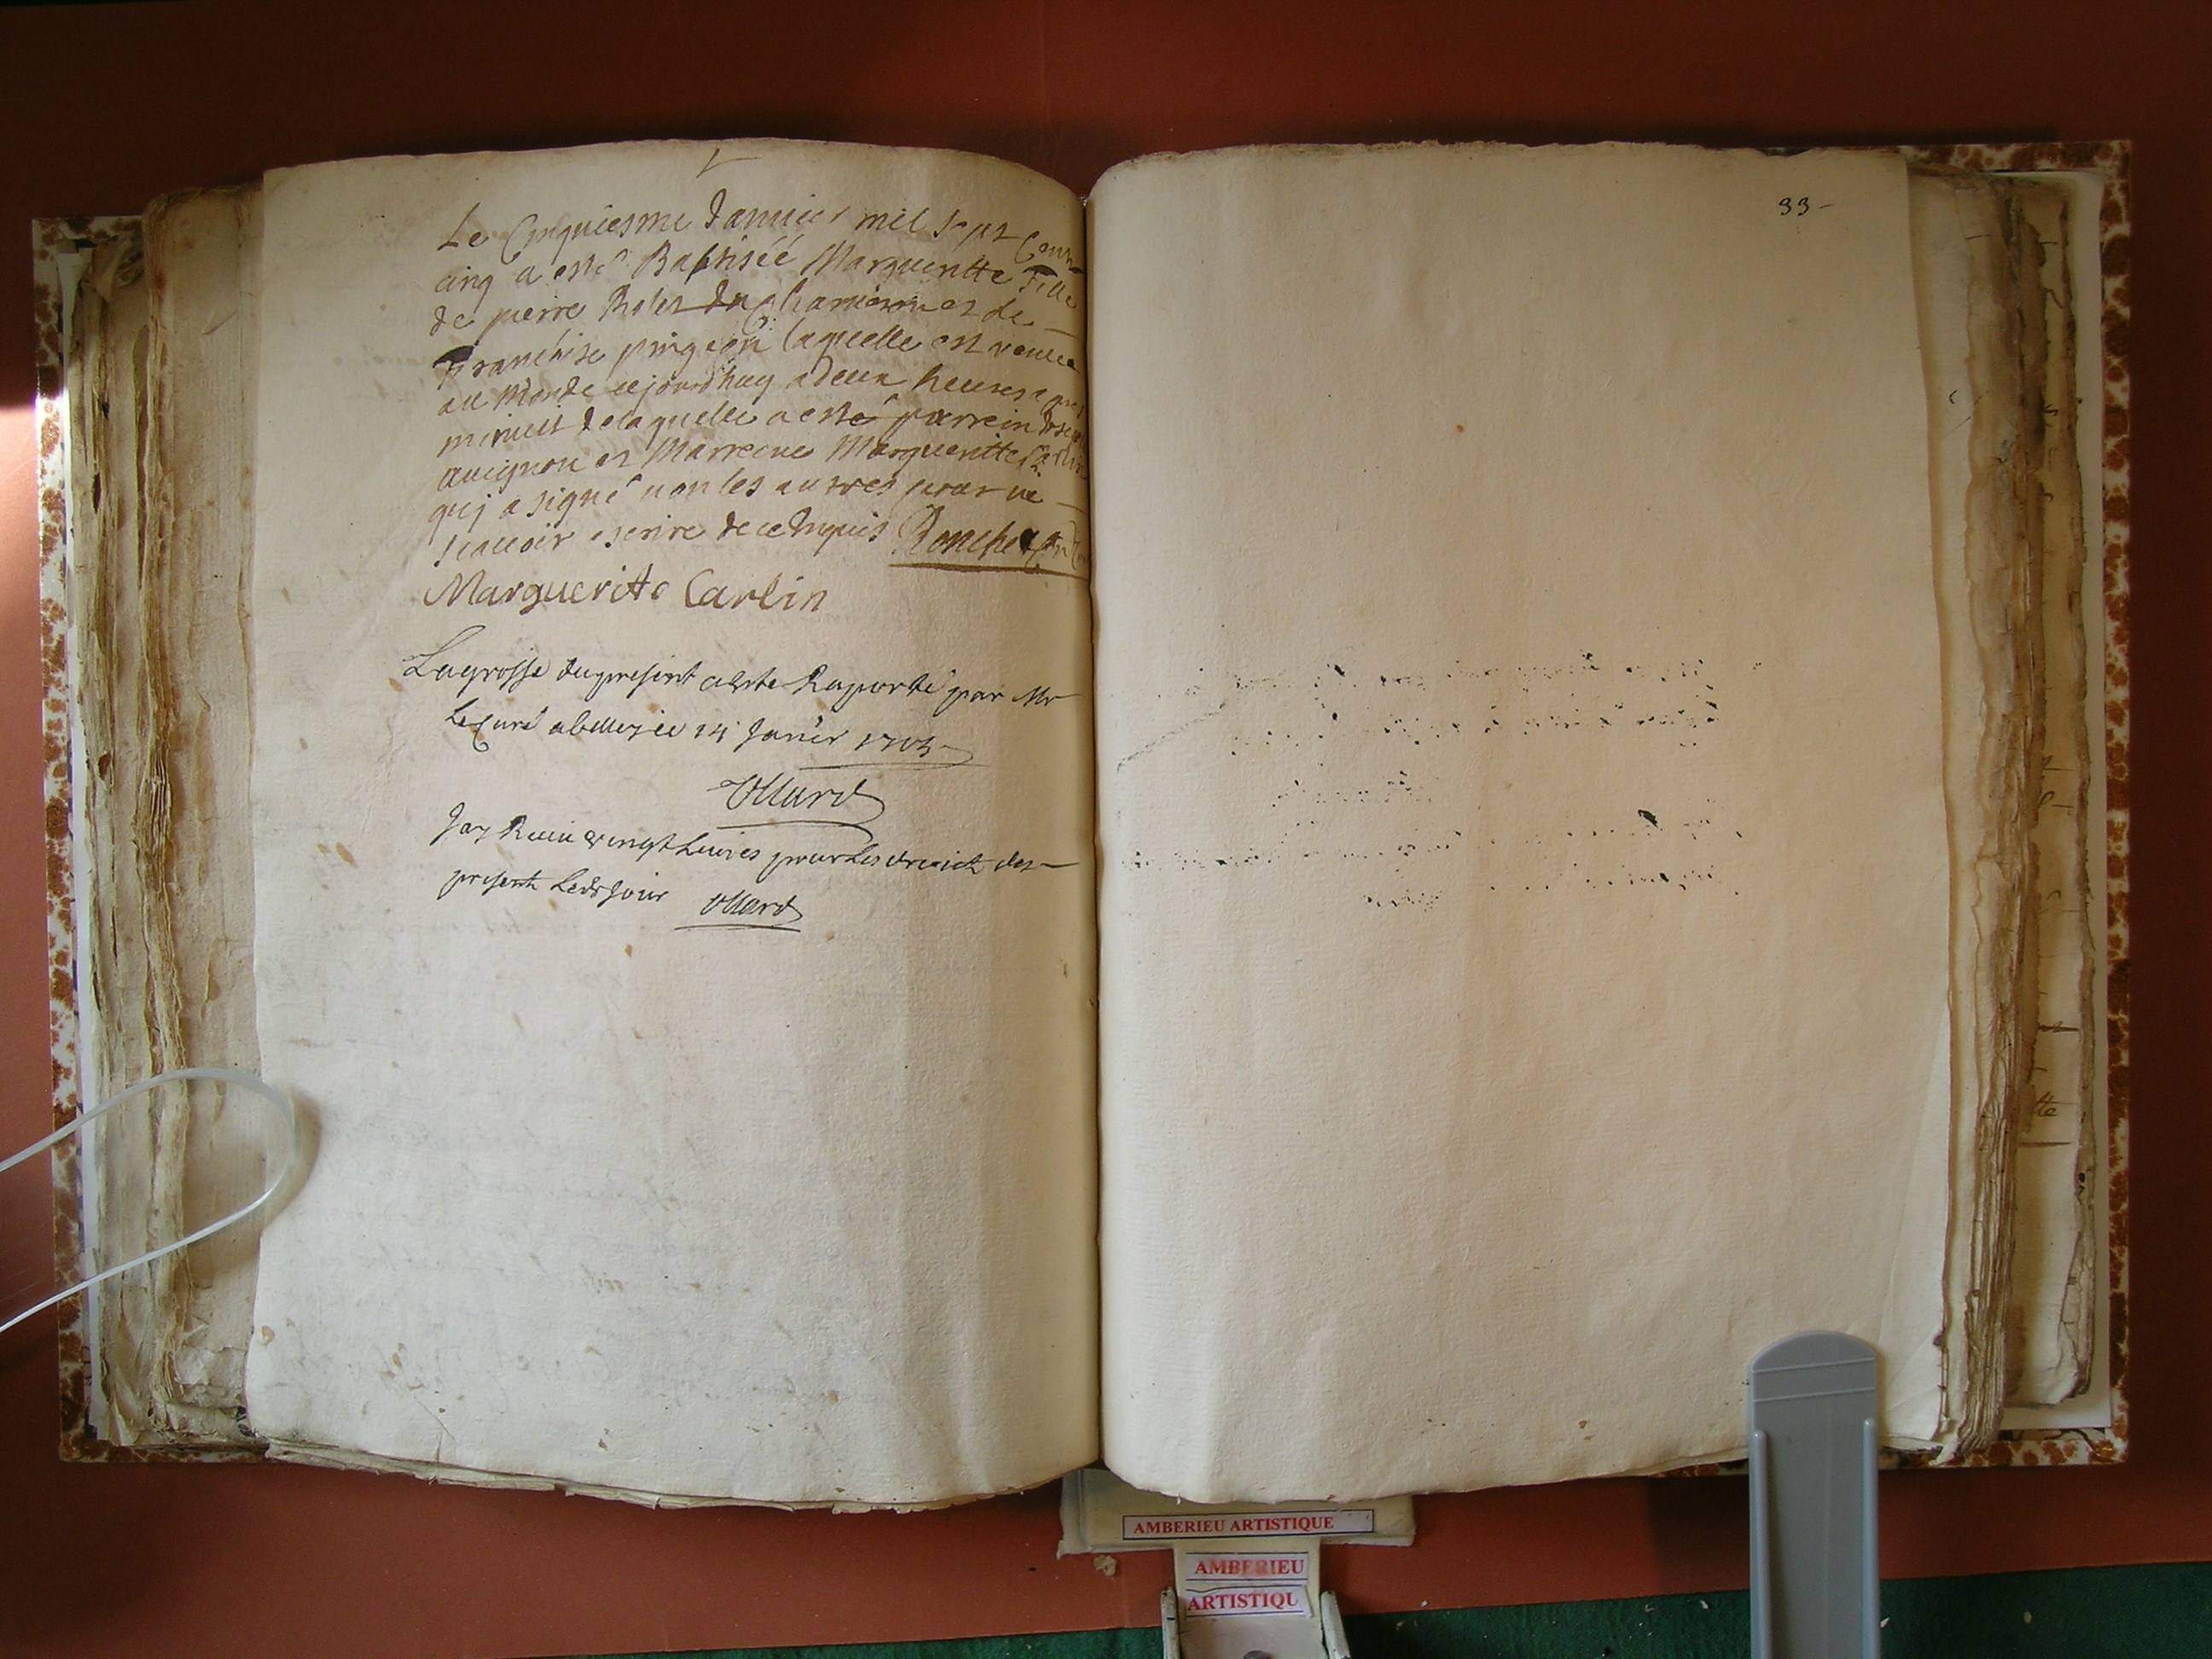 Le Cinquiesme Janvier mil sept Cent
cinq a esté Baptiséé Margueritte Fille
de pierre Bolet et de
Francoise pingeon laquelle est venue
au Monde cejourdhuy a deux heures apres
minuit de laquelle a esté parrein
avignon et Marreine Margueritte Carlin
quj a signé non les autres pour ne
scavoir escrire de ce enquis
Margueritte Carlin
La grosse du present a esté Raporté par Mr
Le Curé a belley ce 14 Janier 1705
Ollard
Jay Receu vingt Livres pour les droict des
present Ledt Jour Ollard
33
AMBERIEU ARTISTIQUE
AMBERIEU
ARTISTIQU